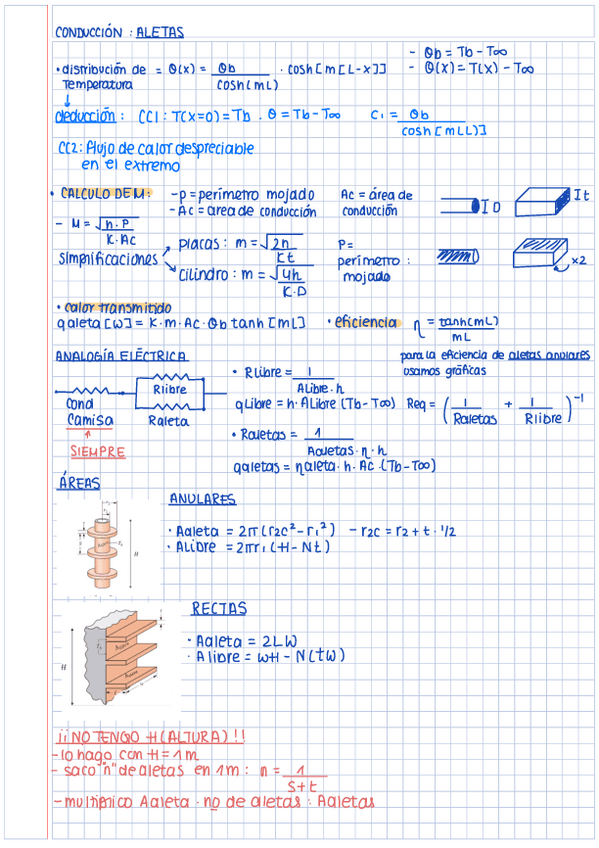 CONDUCCIÓN : ALETAS
- θb = Tb - T∞
• distribución de = θ(x) = θb / cosh(mL) · cosh[m[L-x]] - θ(x) = T(x) - T∞
Temperatura
deducción : CC1 : T(x=0) = Tb . θ = Tb - T∞ C1 = θb / cosh[mLL)]
CC2: Flujo de calor despreciable
en el extremo
• CALCULO DE M: - p = perímetro mojado Ac = área de
- Ac = area de conducción conducción
D t
- M = √(h·P / K·Ac)
simplificaciones placas : m = √(2h / Kt) P=
perímetro :
cilindro : m = √(4h / K·D) mojado
x2
• calor transmitido
qaleta [W] = K·m·Ac·θb tanh[mL] • eficiencia η = tanh(mL) / mL
ANALOGÍA ELÉCTRICA para la eficiencia de aletas anulares
usamos gráficas
• Rlibre = 1 / Alibre·h
Rlibre
cond
camisa
Raleta
qlibre = h·Alibre (Tb - T∞) Req = (1 / Raletas + 1 / Rlibre)⁻¹
SIEMPRE
• Raletas = 1 / Aaletas·η·h
qaletas = ηaleta·h·Ac·(Tb - T∞)
ÁREAS
ANULARES
• Aaleta = 2π(r2c² - r1²) - r2c = r2 + t · 1/2
• Alibre = 2πr1 (H - Nt)
H
RECTAS
• Aaleta = 2LW
• Alibre = WH - N(tW)
H
¡¡NO TENGO H (ALTURA)!!
- lo hago con H = 1m
- saco "n" de aletas en 1m : n = 1 / S+t
- multiplico Aaleta · nº de aletas : Aaletas